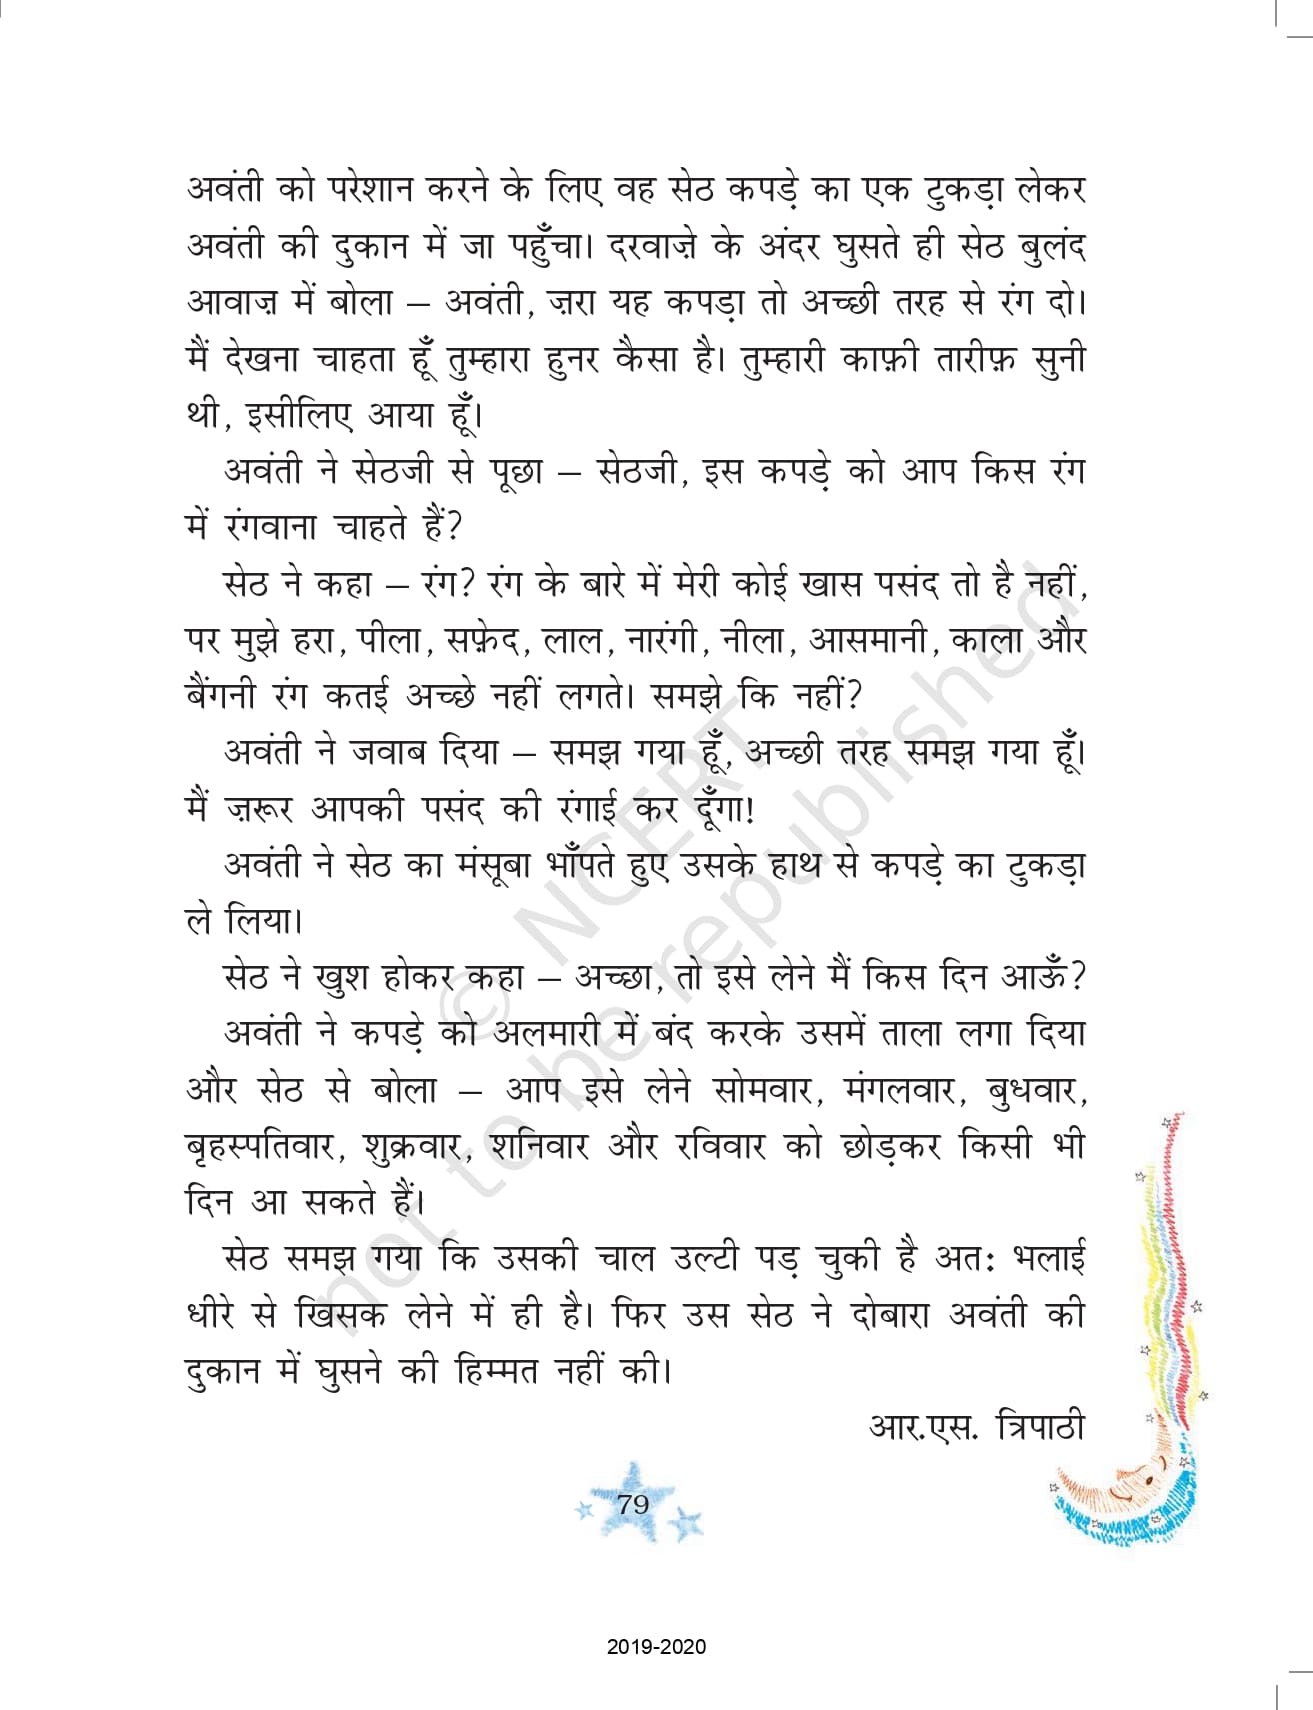 अवंती को परेशान करने के लिए वह सेठ कपड़े का एक टुकड़ा लेकर
अवंती की दुकान में जा पहुँचा। दरवाज़े के अंदर घुसते ही सेठ बुलंद
आवाज़ में बोला – अवंती, ज़रा यह कपड़ा तो अच्छी तरह से रंग दो।
मैं देखना चाहता हूँ तुम्हारा हुनर कैसा है। तुम्हारी काफ़ी तारीफ़ सुनी
थी, इसीलिए आया हूँ।
अवंती ने सेठजी से पूछा – सेठजी, इस कपड़े को आप किस रंग
में रंगवाना चाहते हैं?
सेठ ने कहा – रंग? रंग के बारे में मेरी कोई खास पसंद तो है नहीं,
पर मुझे हरा, पीला, सफ़ेद, लाल, नारंगी, नीला, आसमानी, काला और
बैंगनी रंग कतई अच्छे नहीं लगते। समझे कि नहीं?
अवंती ने जवाब दिया – समझ गया हूँ, अच्छी तरह समझ गया हूँ।
मैं ज़रूर आपकी पसंद की रंगाई कर दूँगा!
अवंती ने सेठ का मंसूबा भाँपते हुए उसके हाथ से कपड़े का टुकड़ा
ले लिया।
सेठ ने खुश होकर कहा – अच्छा, तो इसे लेने मैं किस दिन आऊँ?
अवंती ने कपड़े को अलमारी में बंद करके उसमें ताला लगा दिया
और सेठ से बोला – आप इसे लेने सोमवार, मंगलवार, बुधवार,
बृहस्पतिवार, शुक्रवार, शनिवार और रविवार को छोड़कर किसी भी
दिन आ सकते हैं।
सेठ समझ गया कि उसकी चाल उल्टी पड़ चुकी है अतः भलाई
धीरे से खिसक लेने में ही है। फिर उस सेठ ने दोबारा अवंती की
दुकान में घुसने की हिम्मत नहीं की।
आर.एस. त्रिपाठी
© NCERT
not to be republished
79
2019-2020